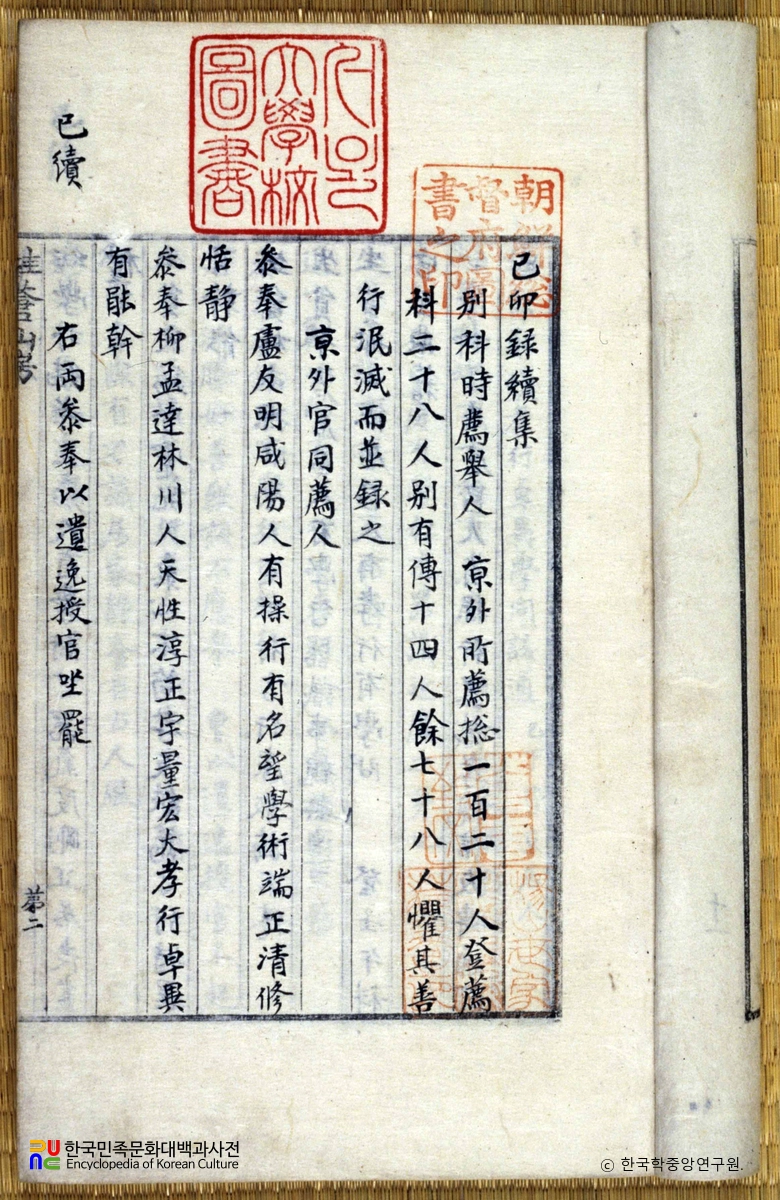 己卯録續集
别科時薦舉人京外所薦揔一百二十人登薦
科二十八人别有傳十四人餘七十八人懼其善
行泯滅而並録之
京外官同薦人
叅奉盧友明咸陽人有操行有名望學術端正清修
恬静
叅奉柳孟達林川人天性淳正宇量宏大孝行卓異
有能幹
右两叅奉以遺逸授官坐罷
已續
第二
朝鮮総
督府圖
書之印
서울
大學校
圖書
한국민족문화대백과사전
Encyclopedia of Korean Culture
© 한국학중앙연구원